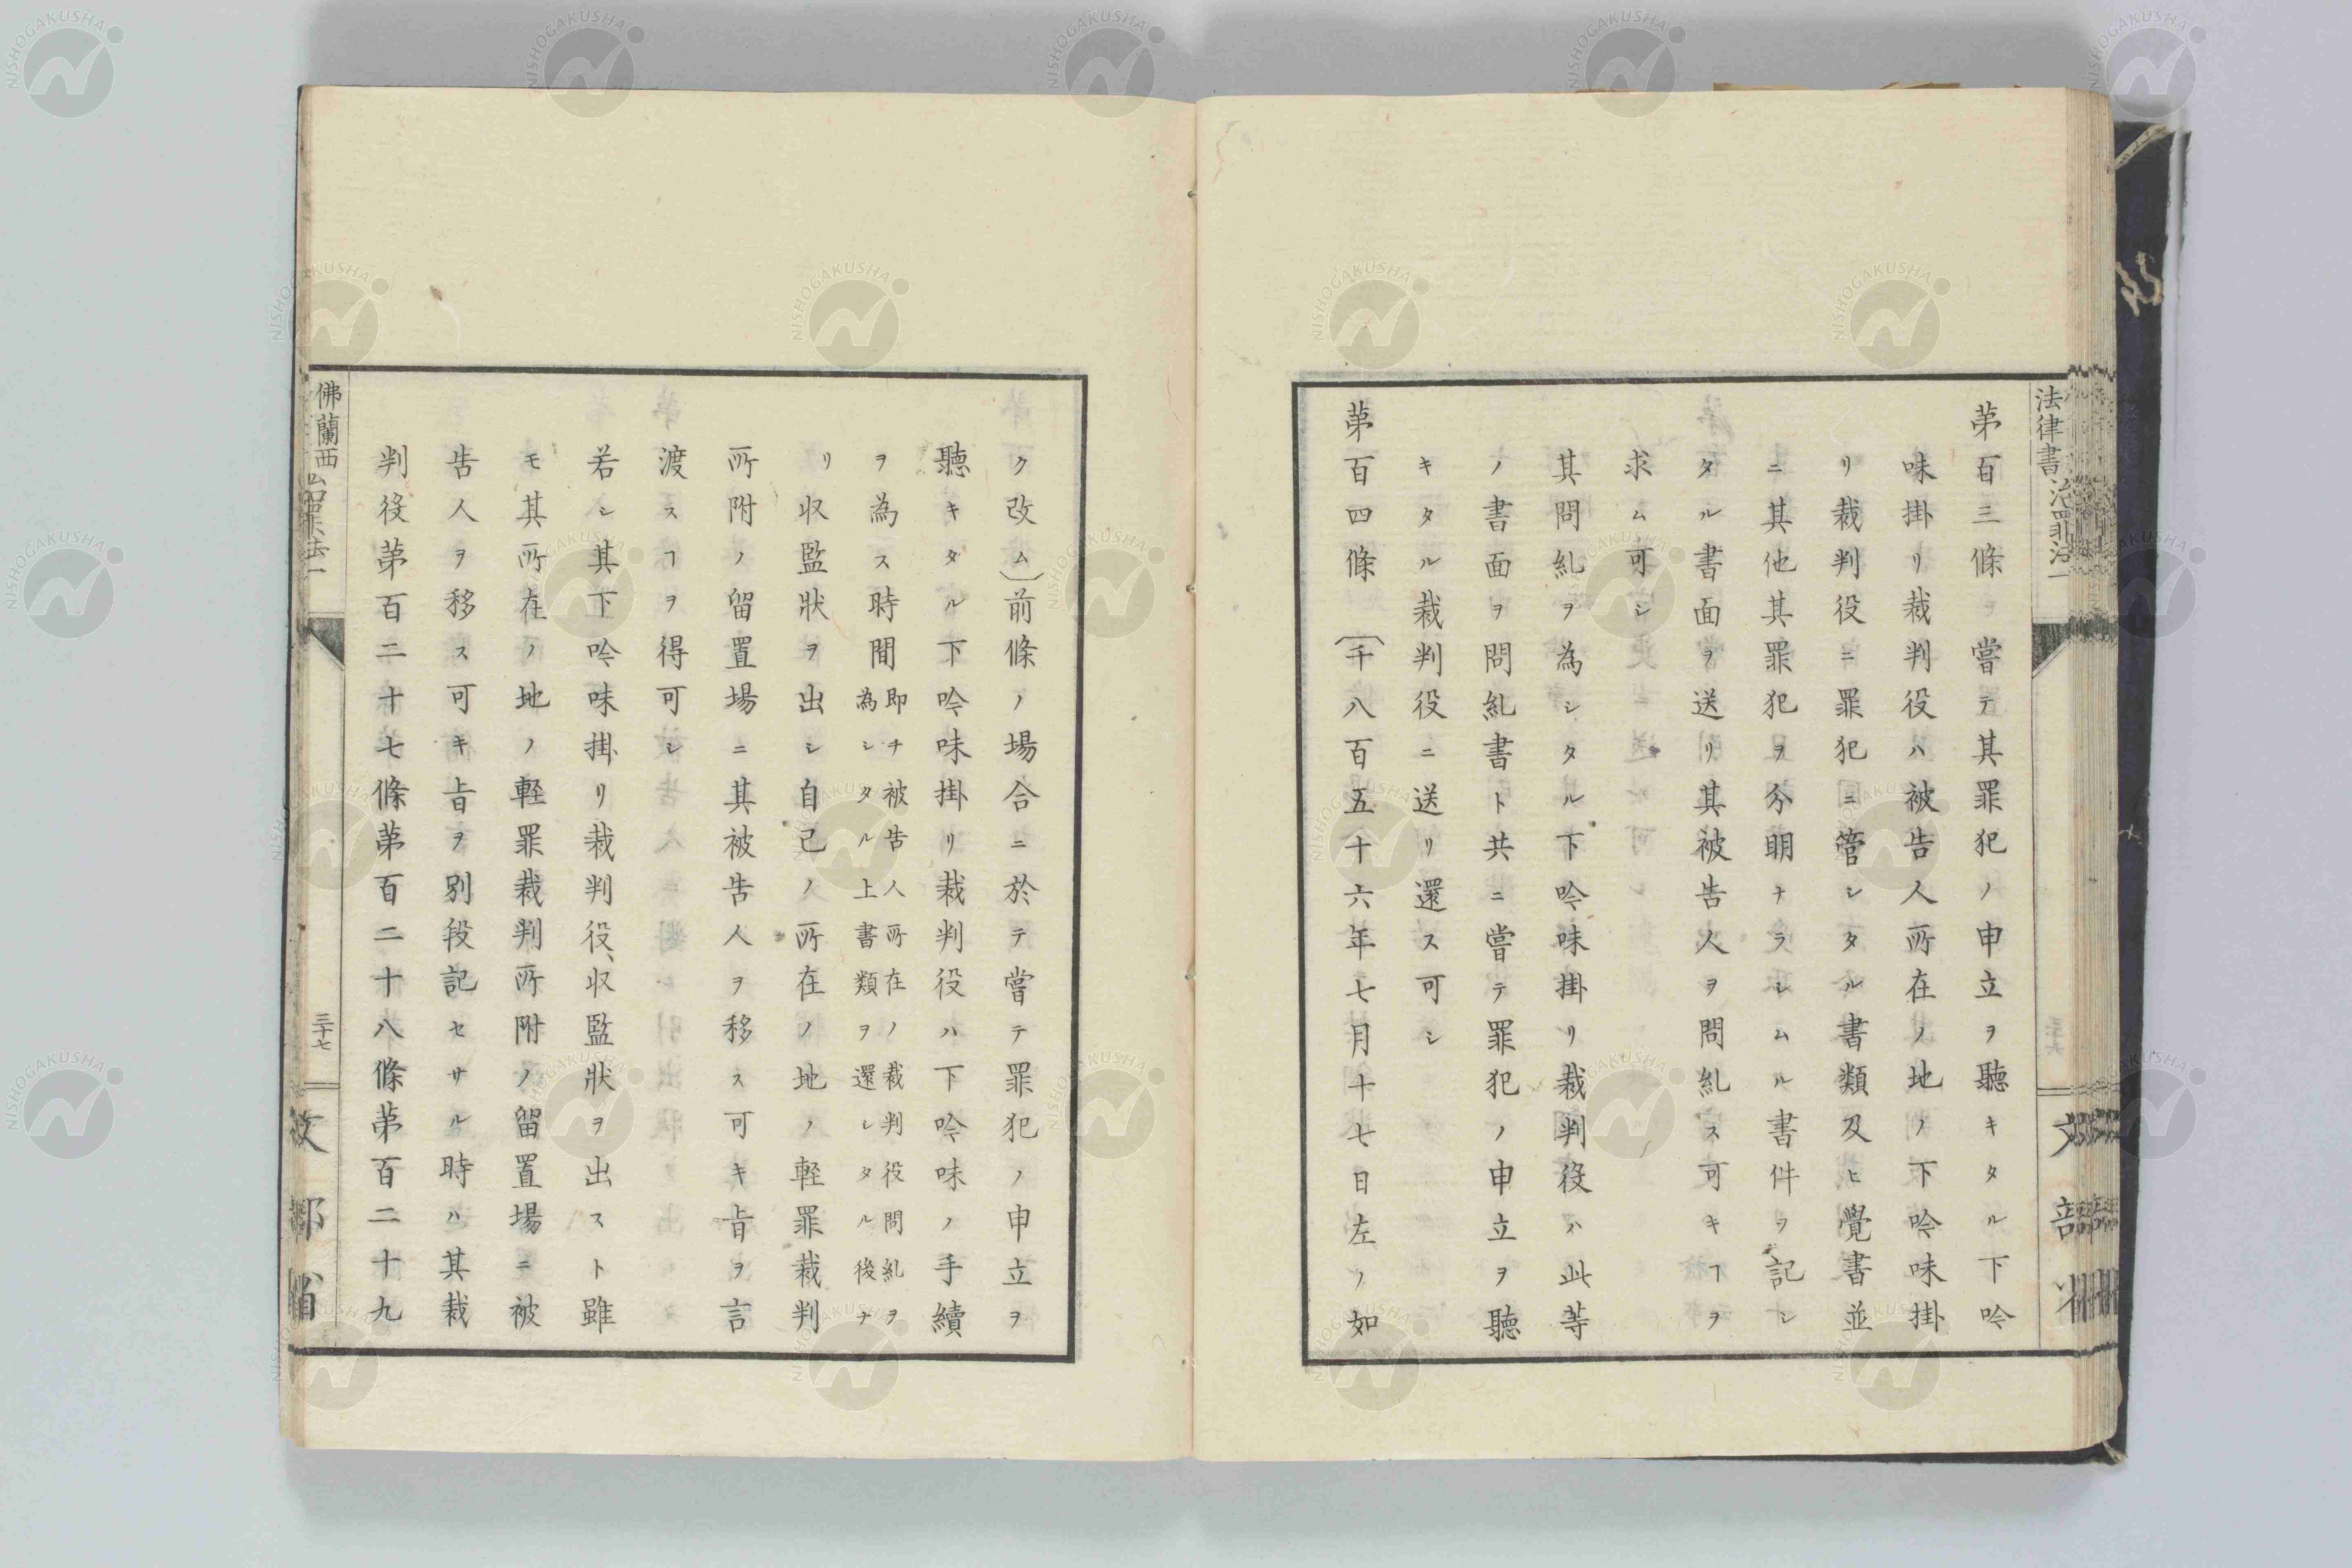 法律書 治罪法一
第百三條 嘗テ其罪犯ノ申立ヲ聽キタル下吟
味掛リ裁判役ハ被告人所在ノ地ノ下吟味掛
リ裁判役ニ罪犯ニ管シタル書類及ヒ覺書並
ニ其他其罪犯ヲ分明ナラシムル書件ヲ記シ
タル書面ヲ送リ其被告人ヲ問糺ス可キヿヲ
求ム可シ
其問糺ヲ為シタル下吟味掛リ裁判役ハ此等
ノ書面ヲ問糺書ト共ニ嘗テ罪犯ノ申立ヲ聽
キタル裁判役ニ送リ還ス可シ
第百四條 〔千八百五十六年七月十七日左ノ如
文部省
ク改ム〕前條ノ場合ニ於テ嘗テ罪犯ノ申立ヲ
聽キタル下吟味掛リ裁判役ハ下吟味ノ手續
ヲ為ス時間即チ被告人所在ノ裁判役問糺ヲ
為シタル上書類ヲ還シタル後ナ
リ収監狀ヲ出シ自己ノ所在ノ地ノ輕罪裁判
所附ノ留置場ニ其被告人ヲ移ス可キ旨ヲ言
渡スヿヲ得可シ
若シ其下吟味掛リ裁判役、収監狀ヲ出スト雖
モ其所在ノ地ノ輕罪裁判所附ノ留置場ニ被
告人ヲ移ス可キ旨ヲ別段記セサル時ハ其裁
判役第百二十七條第百二十八條第百二十九
佛蘭西 治罪法一
三十七
文部省
NISHOGAKUSHA